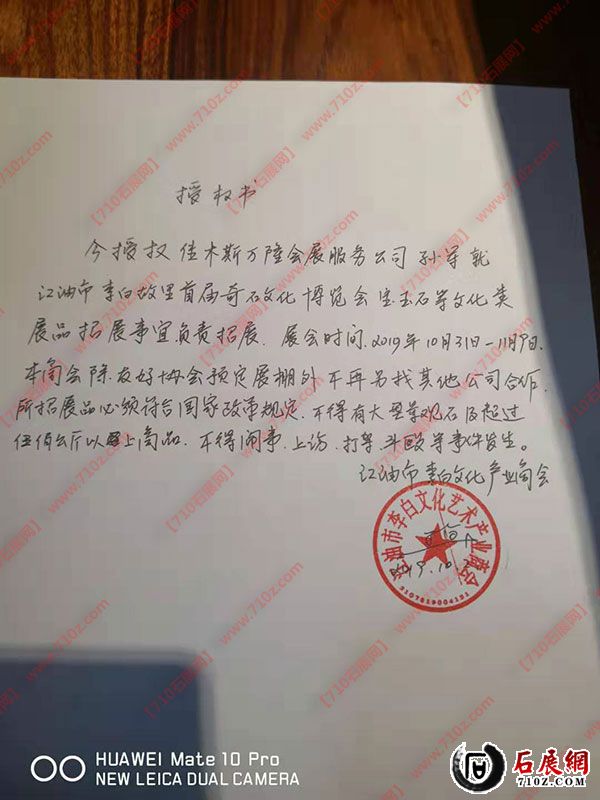 授权书
今授权佳木斯万隆会展服务公司孙军就
江油市李白故里首届奇石文化博览会宝玉石等文化类
展品招展事宜负责招展。展会时间.2019年10月31日-11月9日.
本商会除友好协会预定展棚外不再另找其他公司合作.
所招展品必须符合国家政策规定.不得有大型景观石及超过
伍佰公斤以上商品.不得闹事.上访.打架.斗殴等事件发生。
江油市李白文化产业商会
江油市李白文化艺术产业商会
2019.10.
5107819004191
【710石展网】 www.710z.com
HUAWEI Mate 10 Pro
NEW LEICA DUAL CAMERA
石展網
710z.com